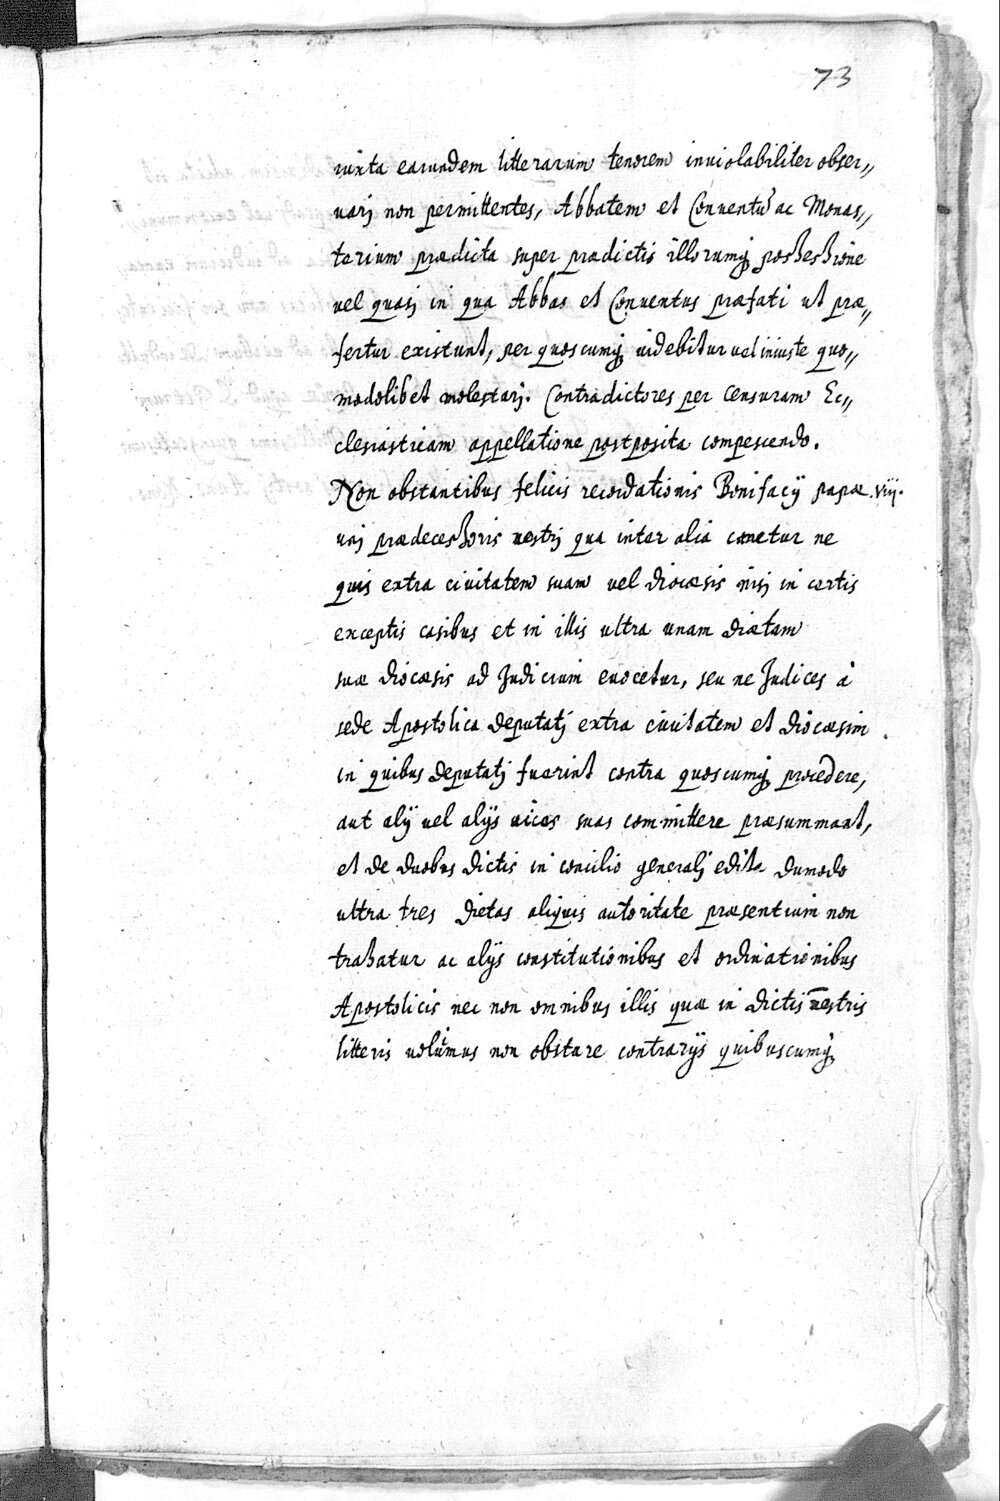 73
iuxta earundem litterarum tenorem inuiolabiliter obser„
uarj non permittentes, Abbatem et Conventũ ac Monas„
terium prædicta super prædictis illorumq; possessione
vel quasj in qua Abbas et Conuentus præfati ut præ„
fertur existunt, per quoscumq; videbitur vel iniuste quo„
modolibet molestarj. Contradictores per censuram Ec„
clesiasticam appellatione postposita compescendo.
Non obstantibus felicis recordationis Bonifacÿ papæ .viij.
vnj prædecessoris nostrj qua inter alia cauetur ne
quis extra ciuitatem suam vel Diocæsis nisj in certis
exceptis casibus et in illis ultra unam Diætam
suæ Diocæsis ad Judicium euocetur, seu ne Judices à
sede Apostolica Deputatj extra ciuitatem et Diocæsim
in quibus Deputatj fuerint contra quoscumq; procedere,
aut alÿ vel alÿs vices suas committere præsummant,
et de Duobus Dictis in concilio generalj edita Dumodo
ultra tres Dietas aliquis autoritate præsentium non
trahatur ac alÿs constitutionibus et ordinationibus
Apostolicis nec non omnibus illis quæ in Dictis nostris
litteris volumus non obstare contrarÿs quibuscumq;